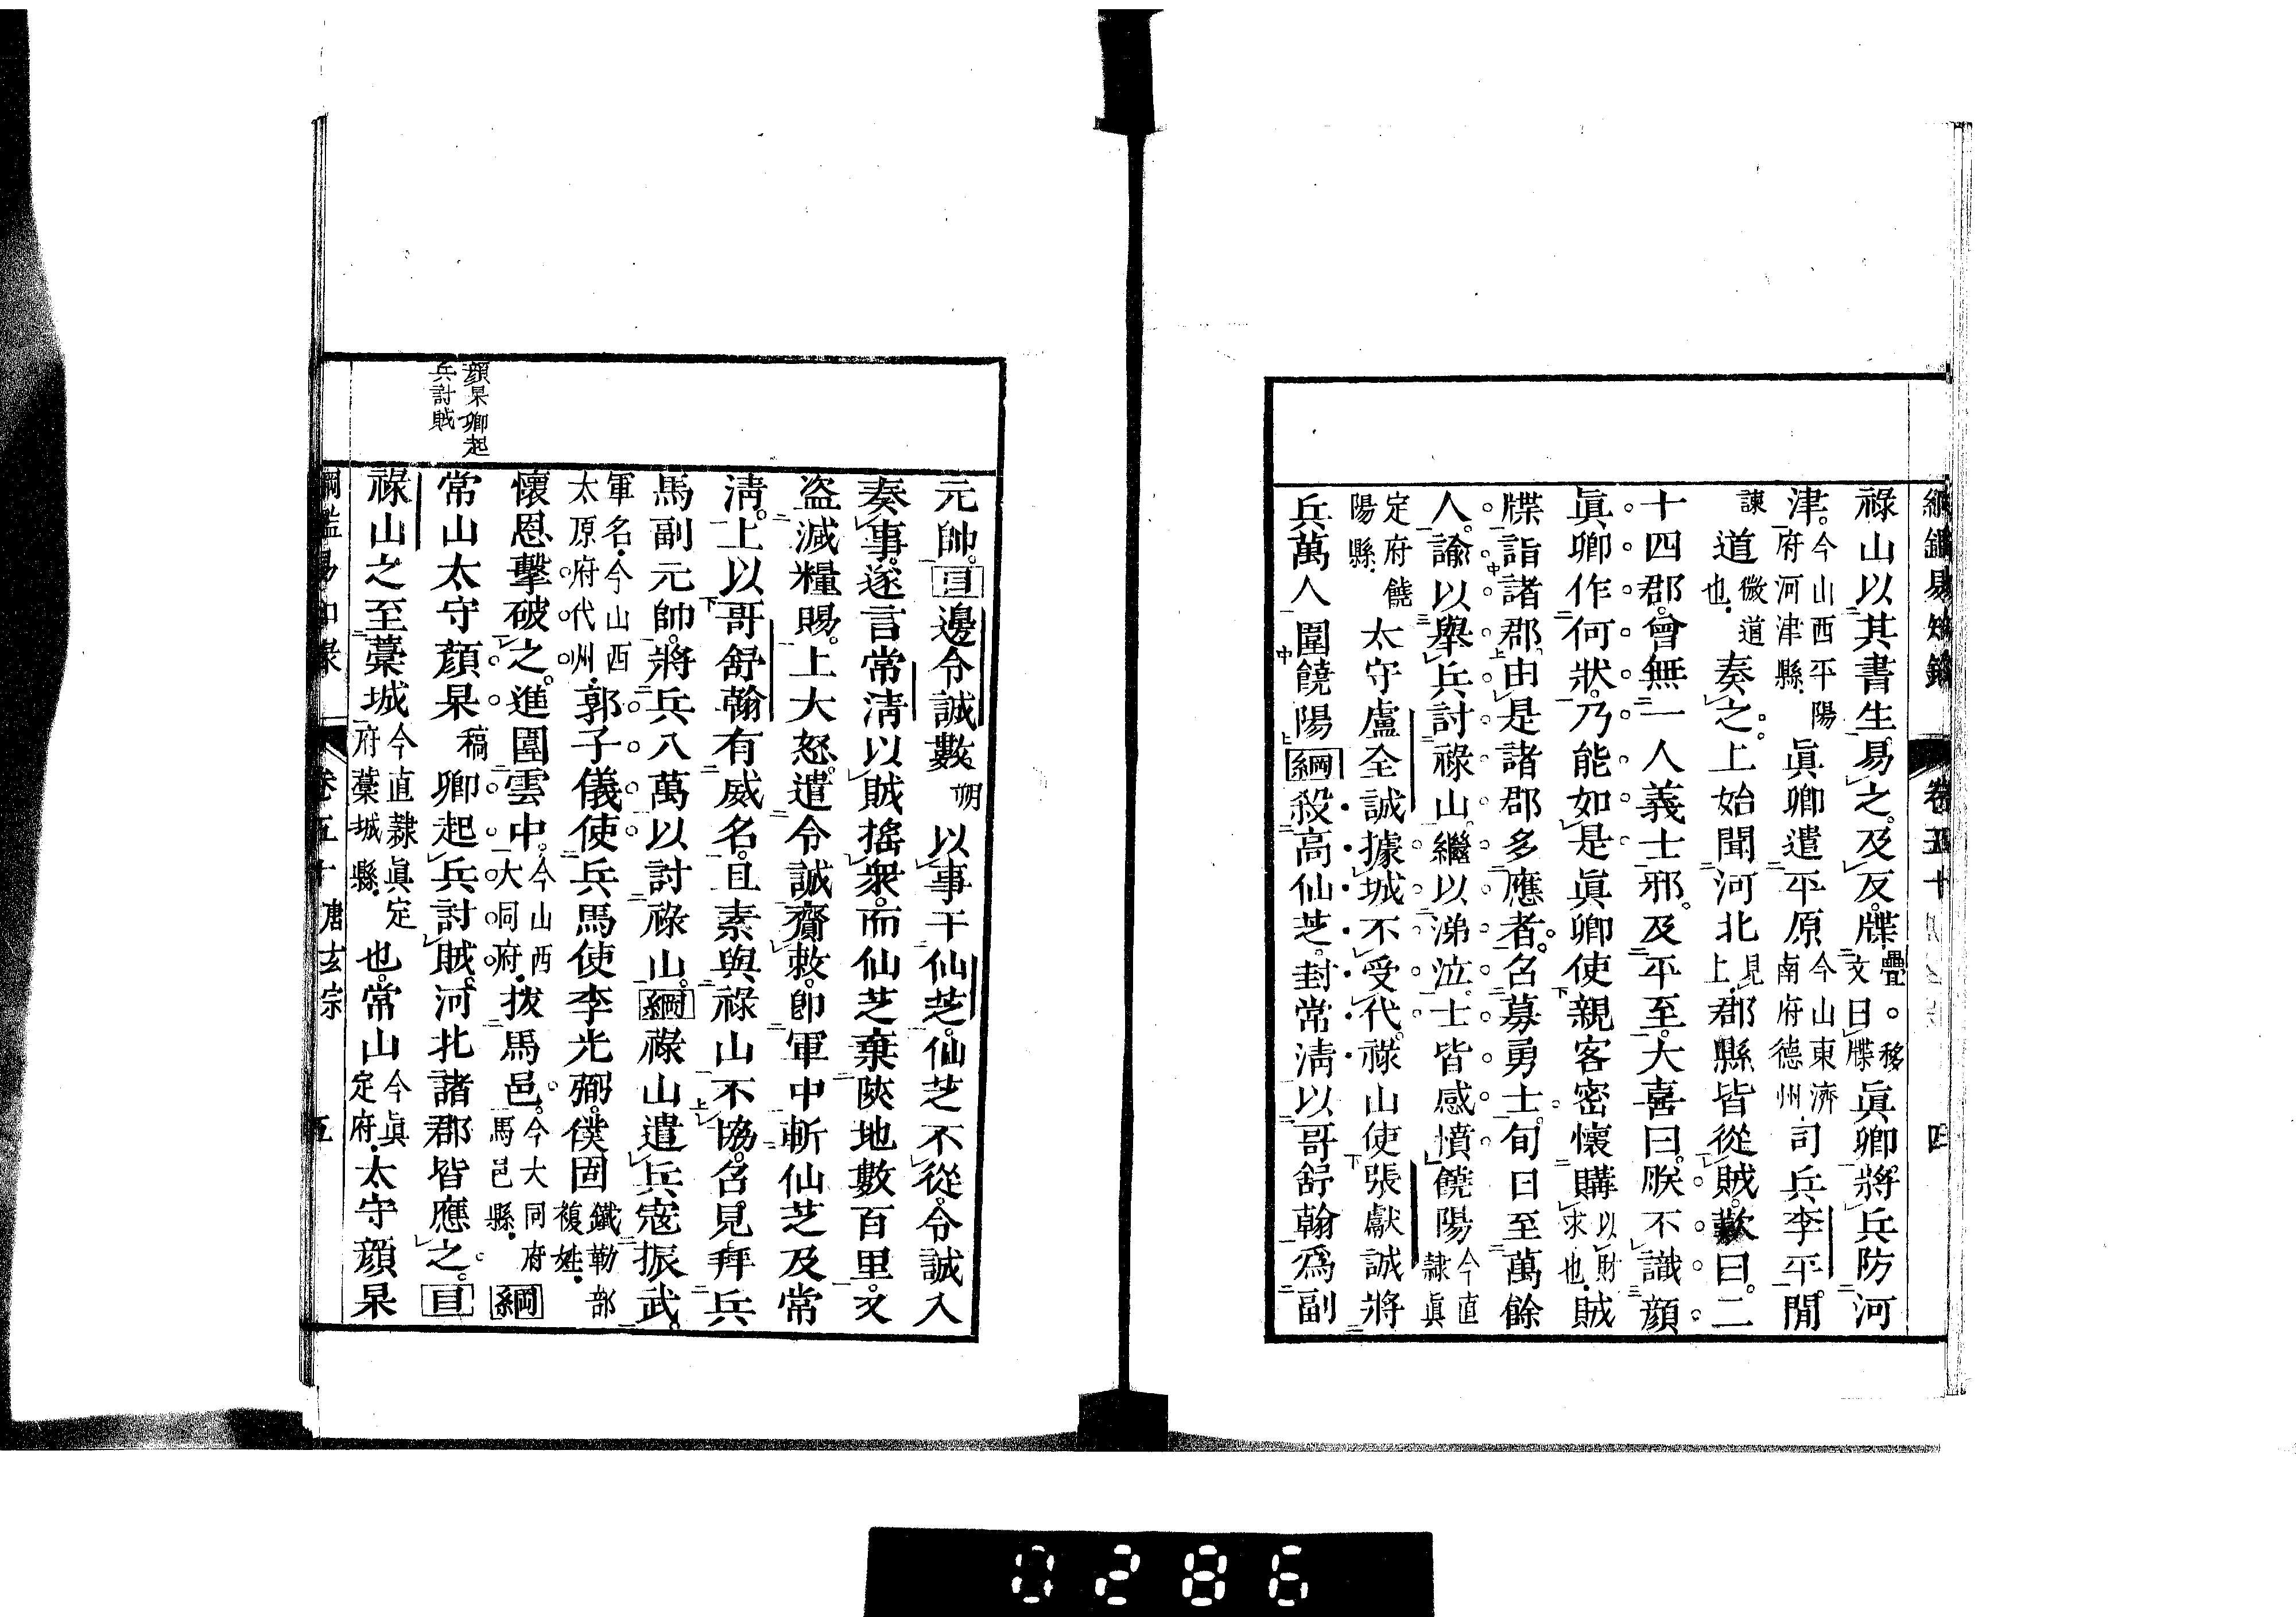 綱鑑易知錄 卷五十 四
祿山以其書生易之及反牒疊。移文曰牒眞卿將兵防河
津今山西平陽府河津縣眞卿遣平原今山東濟南府德州司兵李平閒
諫道微道也奏之上始聞河北見上郡縣皆從賊歎曰二
十四郡曾無一人義士邪及平至大喜曰朕不識顏
眞卿作何狀乃能如是眞卿使親客密懷購以財求也賊
牒詣諸郡由是諸郡多應者召募勇士旬日至萬餘
人諭以舉兵討祿山繼以涕泣士皆感憤饒陽今直隸眞
定府饒陽縣太守盧全誠據城不受代祿山使張獻誠將
兵萬人圍饒陽綱殺高仙芝封常淸以哥舒翰爲副
元帥目邊令誠數朔以事干仙芝仙芝不從令誠入
奏事遂言常淸以賊搖衆而仙芝棄陝地數百里又
盜減糧賜上大怒遣令誠齎敕卽軍中斬仙芝及常
淸上以哥舒翰有威名且素與祿山不協召見拜兵
馬副元帥將兵八萬以討祿山綱祿山遣兵寇振武
軍名今山西太原府代州郭子儀使兵馬使李光弼僕固鐵勒部複姓
懷恩擊破之進圍雲中今山西大同府拔馬邑今大同府馬邑縣綱
常山太守顏杲稿卿起兵討賊河北諸郡皆應之目
祿山之至藁城今直隸眞定府藁城縣也常山今眞定府太守顏杲
顏杲卿起
兵討賊
綱鑑易知錄 卷五十 唐玄宗 五
0286